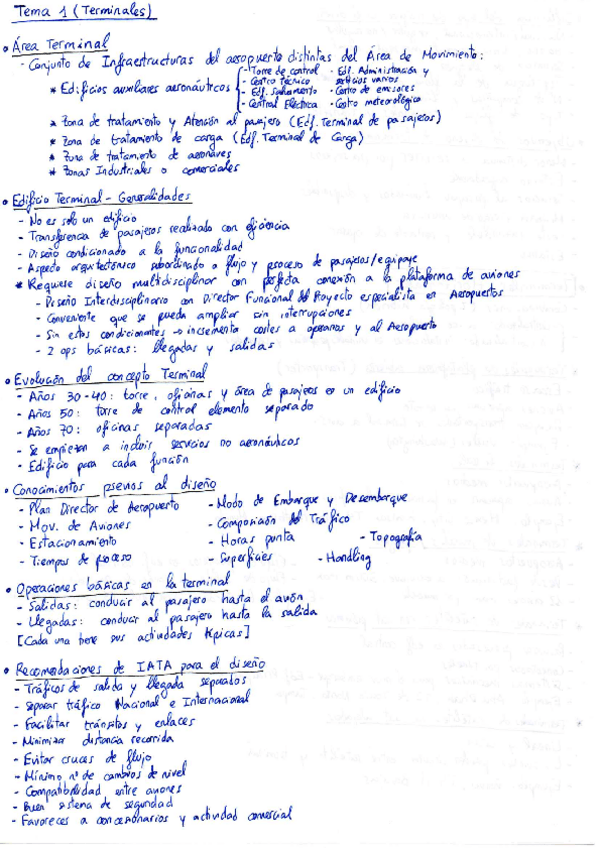 Tema 1 (Terminales)
• Área Terminal
- Conjunto de Infraestructuras del aeropuerto distintas del Área de Movimiento:
* Edificios auxiliares aeronáuticos { - Torre de control - Edf. Administración y
- Centro Técnico servicios varios
- Edf. Salvamento - Centro de emisores
- Central Eléctrica - Centro meteorológico
* Zona de tratamiento y Atención al pasajero (Edf. Terminal de pasajeros)
* Zona de tratamiento de carga (Edf. Terminal de Carga)
* Zona de tratamiento de aeronaves
* Zonas Industriales o comerciales
• Edificio Terminal - Generalidades
- No es solo un edificio
- Transferencia de pasajeros realizado con eficiencia
- Diseño condicionado a la funcionalidad
- Aspecto arquitectónico subordinado a flujo y proceso de pasajeros/equipaje
* Requiere diseño multidisciplinar con perfecta conexión a la plataforma de aviones
- Diseño Interdisciplinario con Director Funcional del Proyecto especialista en Aeropuertos
- Conveniente que se pueda ampliar sin interrupciones
- Sin estos condicionantes → incremento costes a operarios y al Aeropuerto
- 2 ops básicas: llegadas y salidas
• Evolución del concepto Terminal
- Años 30-40: torre, oficinas y área de pasajeros en un edificio
- Años 50: torre de control elemento separado
- Años 70: oficinas separadas
- Se empiezan a incluir servicios no aeronáuticos
- Edificio para cada función
• Conocimientos previos al diseño
- Plan Director de Aeropuerto - Modo de Embarque y Desembarque
- Mov. de Aviones - Composición del Tráfico
- Estacionamiento - Horas punta - Topografía
- Tiempos de proceso - Superficies - Handling
• Operaciones básicas en la terminal
- Salidas: conducir al pasajero hasta el avión
- Llegadas: conducir al pasajero hasta la salida
[Cada una tiene sus actividades típicas]
• Recomendaciones de IATA para el diseño
- Tráficos de salida y llegada separados
- Separar tráfico Nacional e Internacional
- Facilitar tránsitos y enlaces
- Minimizar distancia recorrida
- Evitar cruces de flujo
- Mínimo nº de cambios de nivel
- Compatibilidad entre aviones
- Buen sistema de seguridad
- Favoreces a concesionarios y actividad comercial